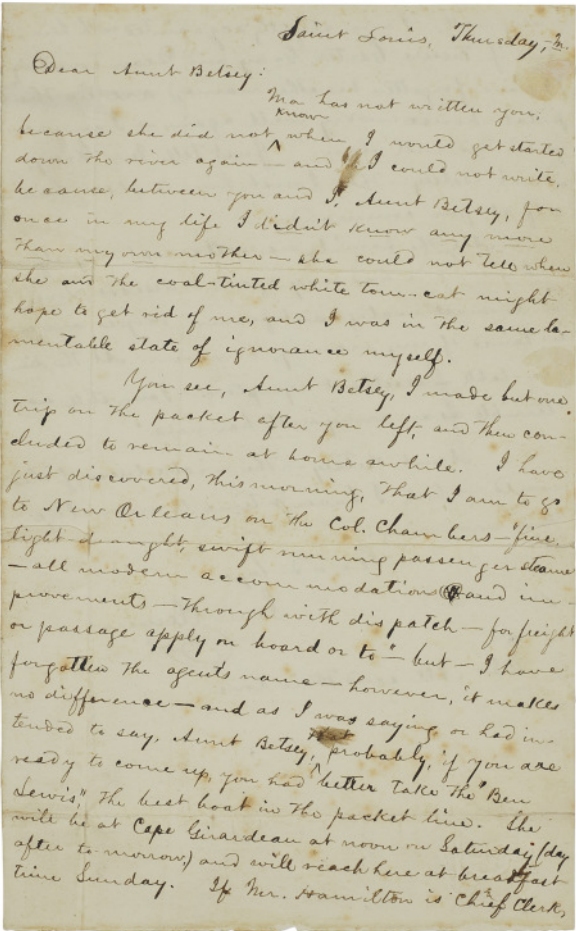 Saint Louis, Thursday, M.
Dear Aunt Betsey:
Ma has not written you,
know
because she did not ^ when I would get started
down the river again — and I could not write,
because, between you and I, Aunt Betsey, for
once in my life I didn't know any more
than my own mother — she could not tell when
she and the coal-tinted white tom-cat might
hope to get rid of me, and I was in the same la-
mentable state of ignorance myself.
You see, Aunt Betsey, I made but one
trip on the packet after you left, and then con-
cluded to remain at home awhile. I have
just discovered, this morning, that I am to go
to New Orleans on the Col. Chambers — "fine,
light-draught, swift running passenger steame
— all modern accommodations and im-
provements — through with dispatch — for freight
or passage apply on board or to" — but — I have
forgotten the agent's name — however, it makes
no difference — and as I was saying or had in-
that
tended to say, Aunt Betsey, ^ probably, if you are
ready to come up, you had better take the "Ben
Lewis," the best boat in the packet line. She
will be at Cape Girardeau at noon on Saturday (day
after to-morrow,) and will reach here at breakfast
time Sunday. If Mr. Hamilton is Chief Clerk,